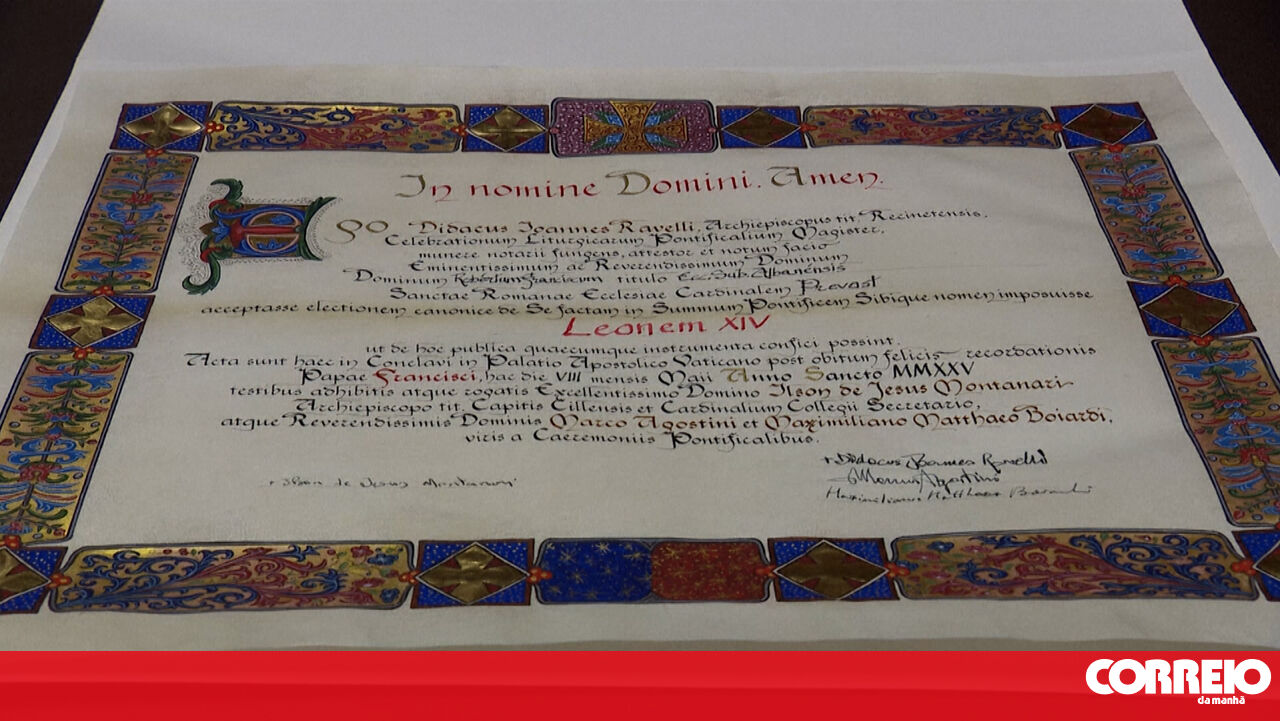 In nomine Domini. Amen.
Ego Didacus Ioannes Ravelli, Archiepiscopus tit. Recinetensis,
Celebrationum Liturgicarum Pontificalium Magister,
munere notarii fungens, attestor et notum facio
Eminentissimum ac Reverendissimum Dominum
Dominum Robertum Franciscum titulo Eccl. Sub. Albanensis
Sanctae Romanae Ecclesiae Cardinalem Prevost
acceptasse electionem canonice de Se factam in Summum Pontificem Sibique nomen imposuisse
Leonem XIV
ut de hoc publica quaecumque instrumenta confici possint.
Acta sunt haec in Conclavi in Palatio Apostolico Vaticano post obitum felicis recordationis
Papae Francisci, hac die VIII mensis Maii Anno Sancto MMXXV
testibus adhibitis atque rogatis Excellentissimo Domino Ilson de Jesus Montanari
Archiepiscopo tit. Capitis Cillensis et Cardinalium Collegii Secretario,
atque Reverendissimis Dominis Marco Agostini et Maximiliano Matthaeo Boiardi,
viris a Caeremoniis Pontificalibus.
+ Didacus Ioannes Ravelli
+ Ilson de Jesus Montanari
Marcus Agostini
Maximilianus Matthaeus Boiardi
CORREIO
da manhã